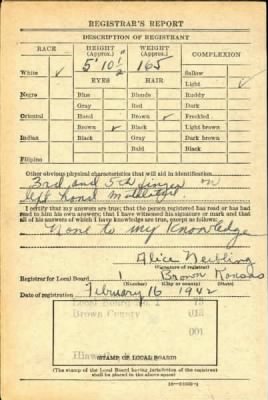 REGISTRAR'S REPORT
DESCRIPTION OF REGISTRANT
RACE HEIGHT (Approx.) WEIGHT (Approx.) COMPLEXION
5' 10 1/2 165
White ✓ EYES HAIR Sallow
Light ✓
Negro Blue Blonde Ruddy
Gray Red Dark
Oriental Hazel Brown ✓ Freckled
Brown ✓ Black Light brown
Indian Black Gray Dark brown
Bald Black
Filipino
Other obvious physical characteristics that will aid in identification
3rd and 5th finger on
left hand
I certify that my answers are true; that the person registered has read or has had
read to him his own answers; that I have witnessed his signature or mark and that
all of his answers of which I have knowledge are true, except as follows:
None to my knowledge
Alice
(Signature of registrar)
Registrar for Local Board 1 Brown Kansas
(Number) (City or county) (State)
Date of registration February 16 1942
Local Board No. 1
Brown County 013
001
(STAMP OF LOCAL BOARD)
(The stamp of the Local Board having jurisdiction of the registrant
shall be placed in the above space)